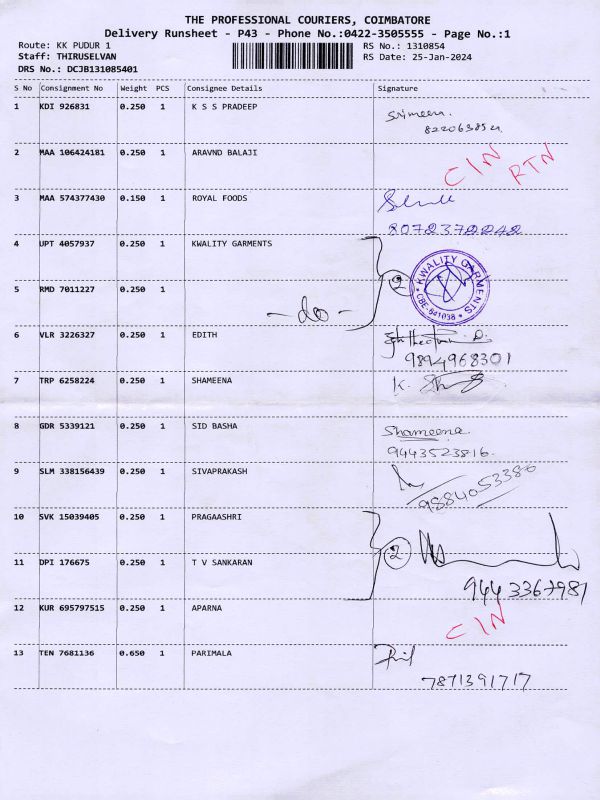 THE PROFESSIONAL COURIERS, COIMBATORE
Delivery Runsheet - P43 - Phone No.:0422-3505555 - Page No.:1
Route: KK PUDUR 1
RS No.: 1310854
Staff: THIRUSELVAN
RS Date: 25-Jan-2024
DRS No.: DCJB131085401
S No Consignment No Weight PCS Consignee Details Signature
1 KDI 926831 0.250 1 K S S PRADEEP
2 MAA 106424181 0.250 1 ARAVND BALAJI CIN RTN
3 MAA 574377430 0.150 1 ROYAL FOODS
4 UPT 4057937 0.250 1 KWALITY GARMENTS 2
KWALITY GARMENTS
CBE-641038
5 RMD 7011227 0.250 1 - do -
6 VLR 3226327 0.250 1 EDITH
9894968301
7 TRP 6258224 0.250 1 SHAMEENA K.
8 GDR 5339121 0.250 1 SID BASHA Shameena
9443523816.
9 SLM 338156439 0.250 1 SIVAPRAKASH
9884053386
10 SVK 15039405 0.250 1 PRAGAASHRI 2
11 DPI 176675 0.250 1 T V SANKARAN
9443367981
12 KUR 695797515 0.250 1 APARNA CIN
13 TEN 7681136 0.650 1 PARIMALA
7871391717